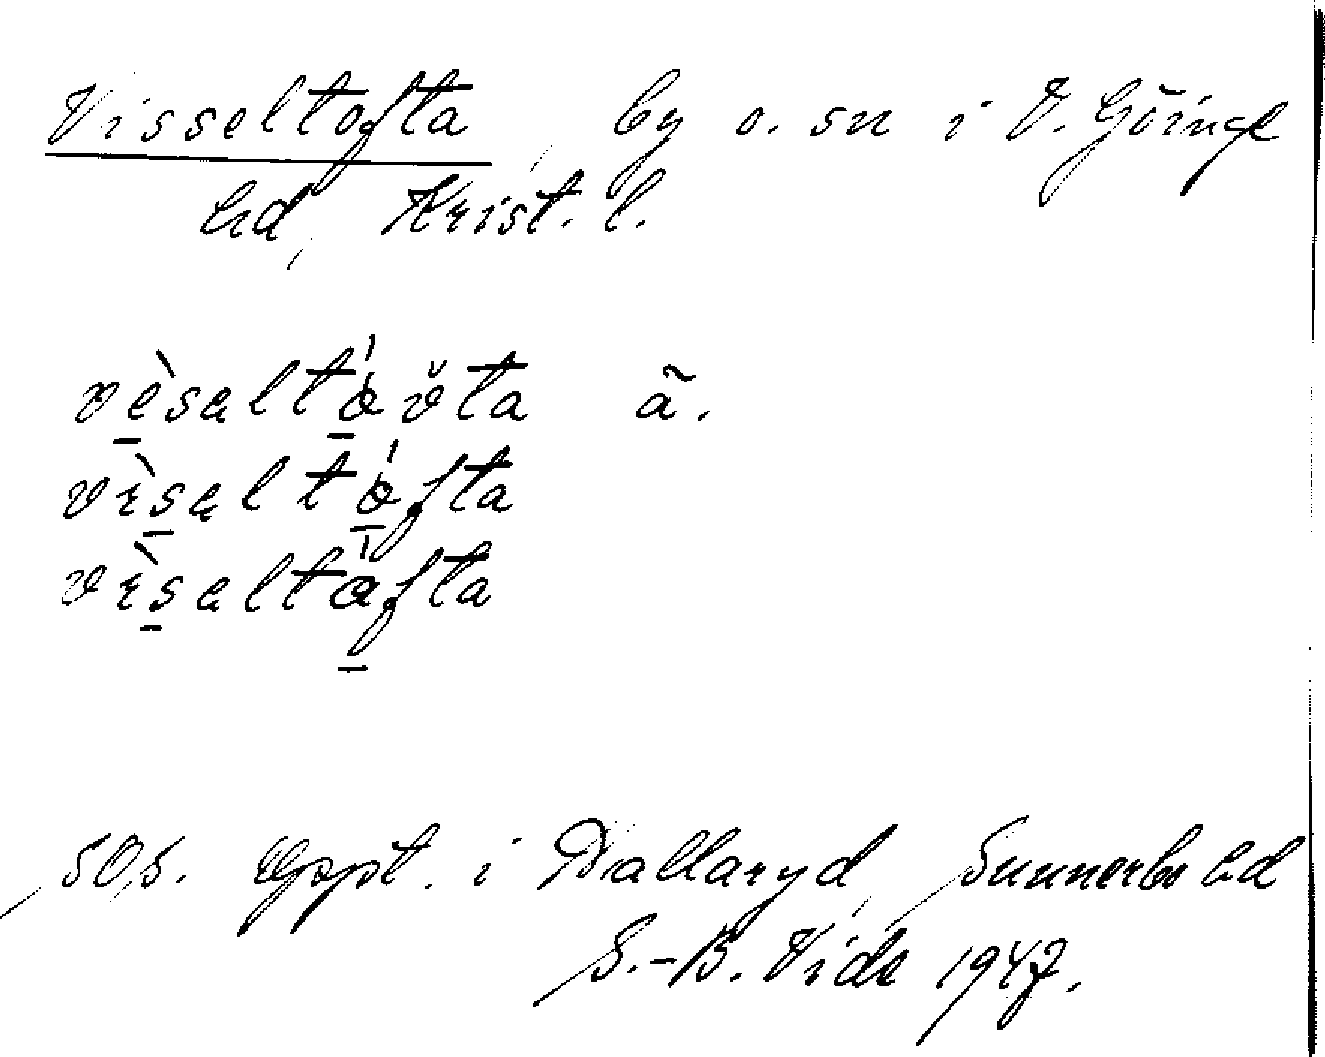 Visseltofta, by o. sn i V. Göinge
hd, Krist. l.
vèsaltǻv̌ta ã.
vìsaltǻfta
vìsaltáfta
Uppt. i Hallaryd, Sunnerbo hd
S.-B. Vide 1947.